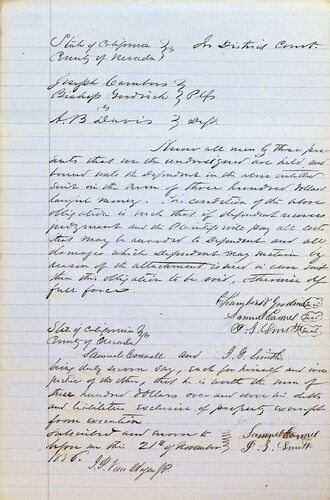 State of California } In District Court
County of Nevada
Joseph Cambers }
Bishop Goodrich } Plfs
vs
A. B. Davis } Deft.
Know all men by these pre
sents that we the undersigned are held and
bound unto the Defendant in the above entitled
Suit in the sum of three hundred dollars
lawful money. The condition of the above
obligation is such that if defendant recovers
judgment and the Plaintiffs will pay all costs
that may be awarded to Defendant and all
damages which Defendant may sustain by
reason of the attachment issued in above suit
then this obligation to be void, otherwise of
full force
Chambers & Goodrich
Samuel Connell
J. S. Smith
State of California
County of Nevada
Samuel Connell and J. S. Smith
being duly sworn say, each for himself and inde
pendent of the other, that he is worth the sum of
three hundred dollars over and above his debts
and liabilities exclusive of property exempt
from execution
Subscribed and sworn to
before me this 21st of November
1856.
Samuel Connell
J. S. Smith